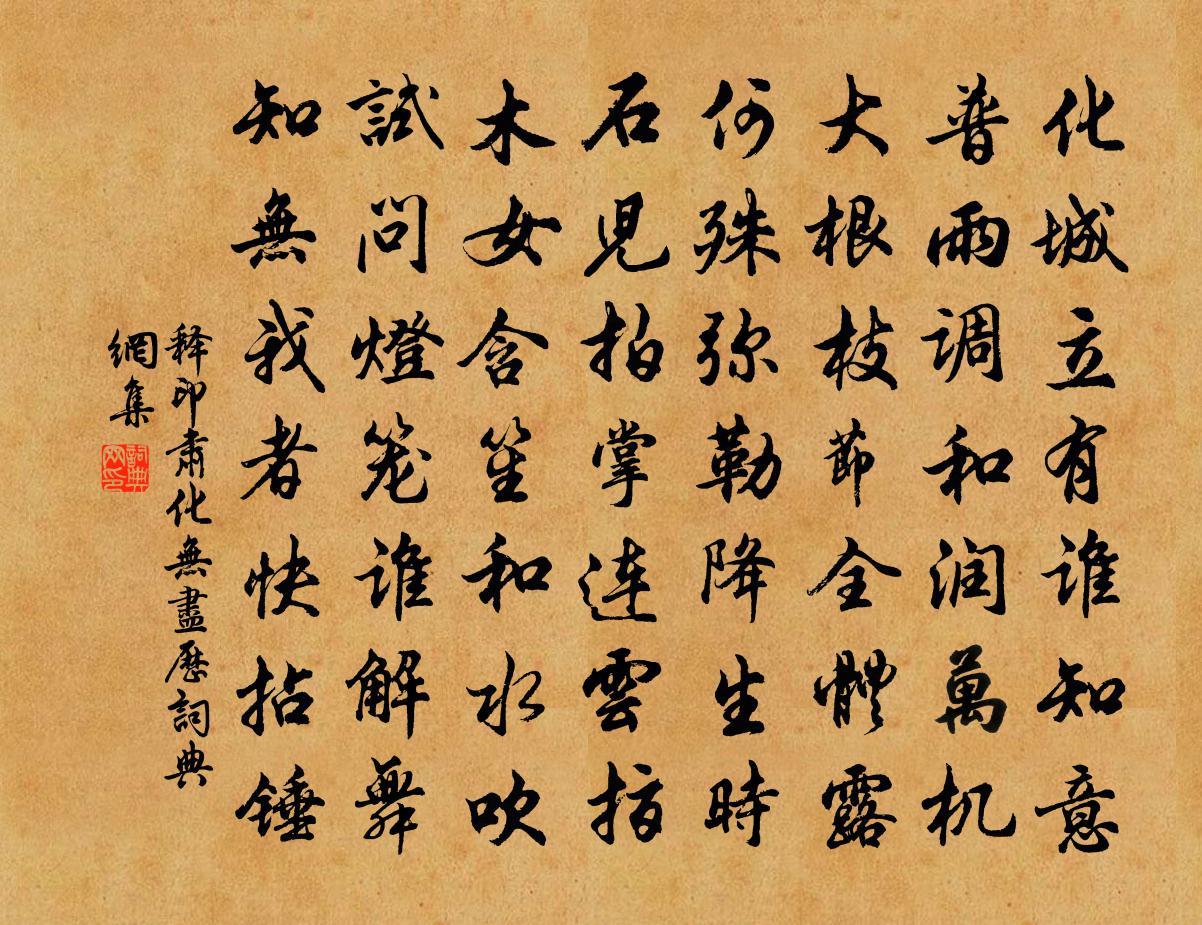 化城立有谁知意
普雨调和润萬机
大根枝節全體露
何殊弥勒降生時
石児拍掌连雲指
木女含笙和水吹
試问燈笼谁解舞
知無我者快拈锤
释印肃化無盡歷詞典
網集
詞典
网印